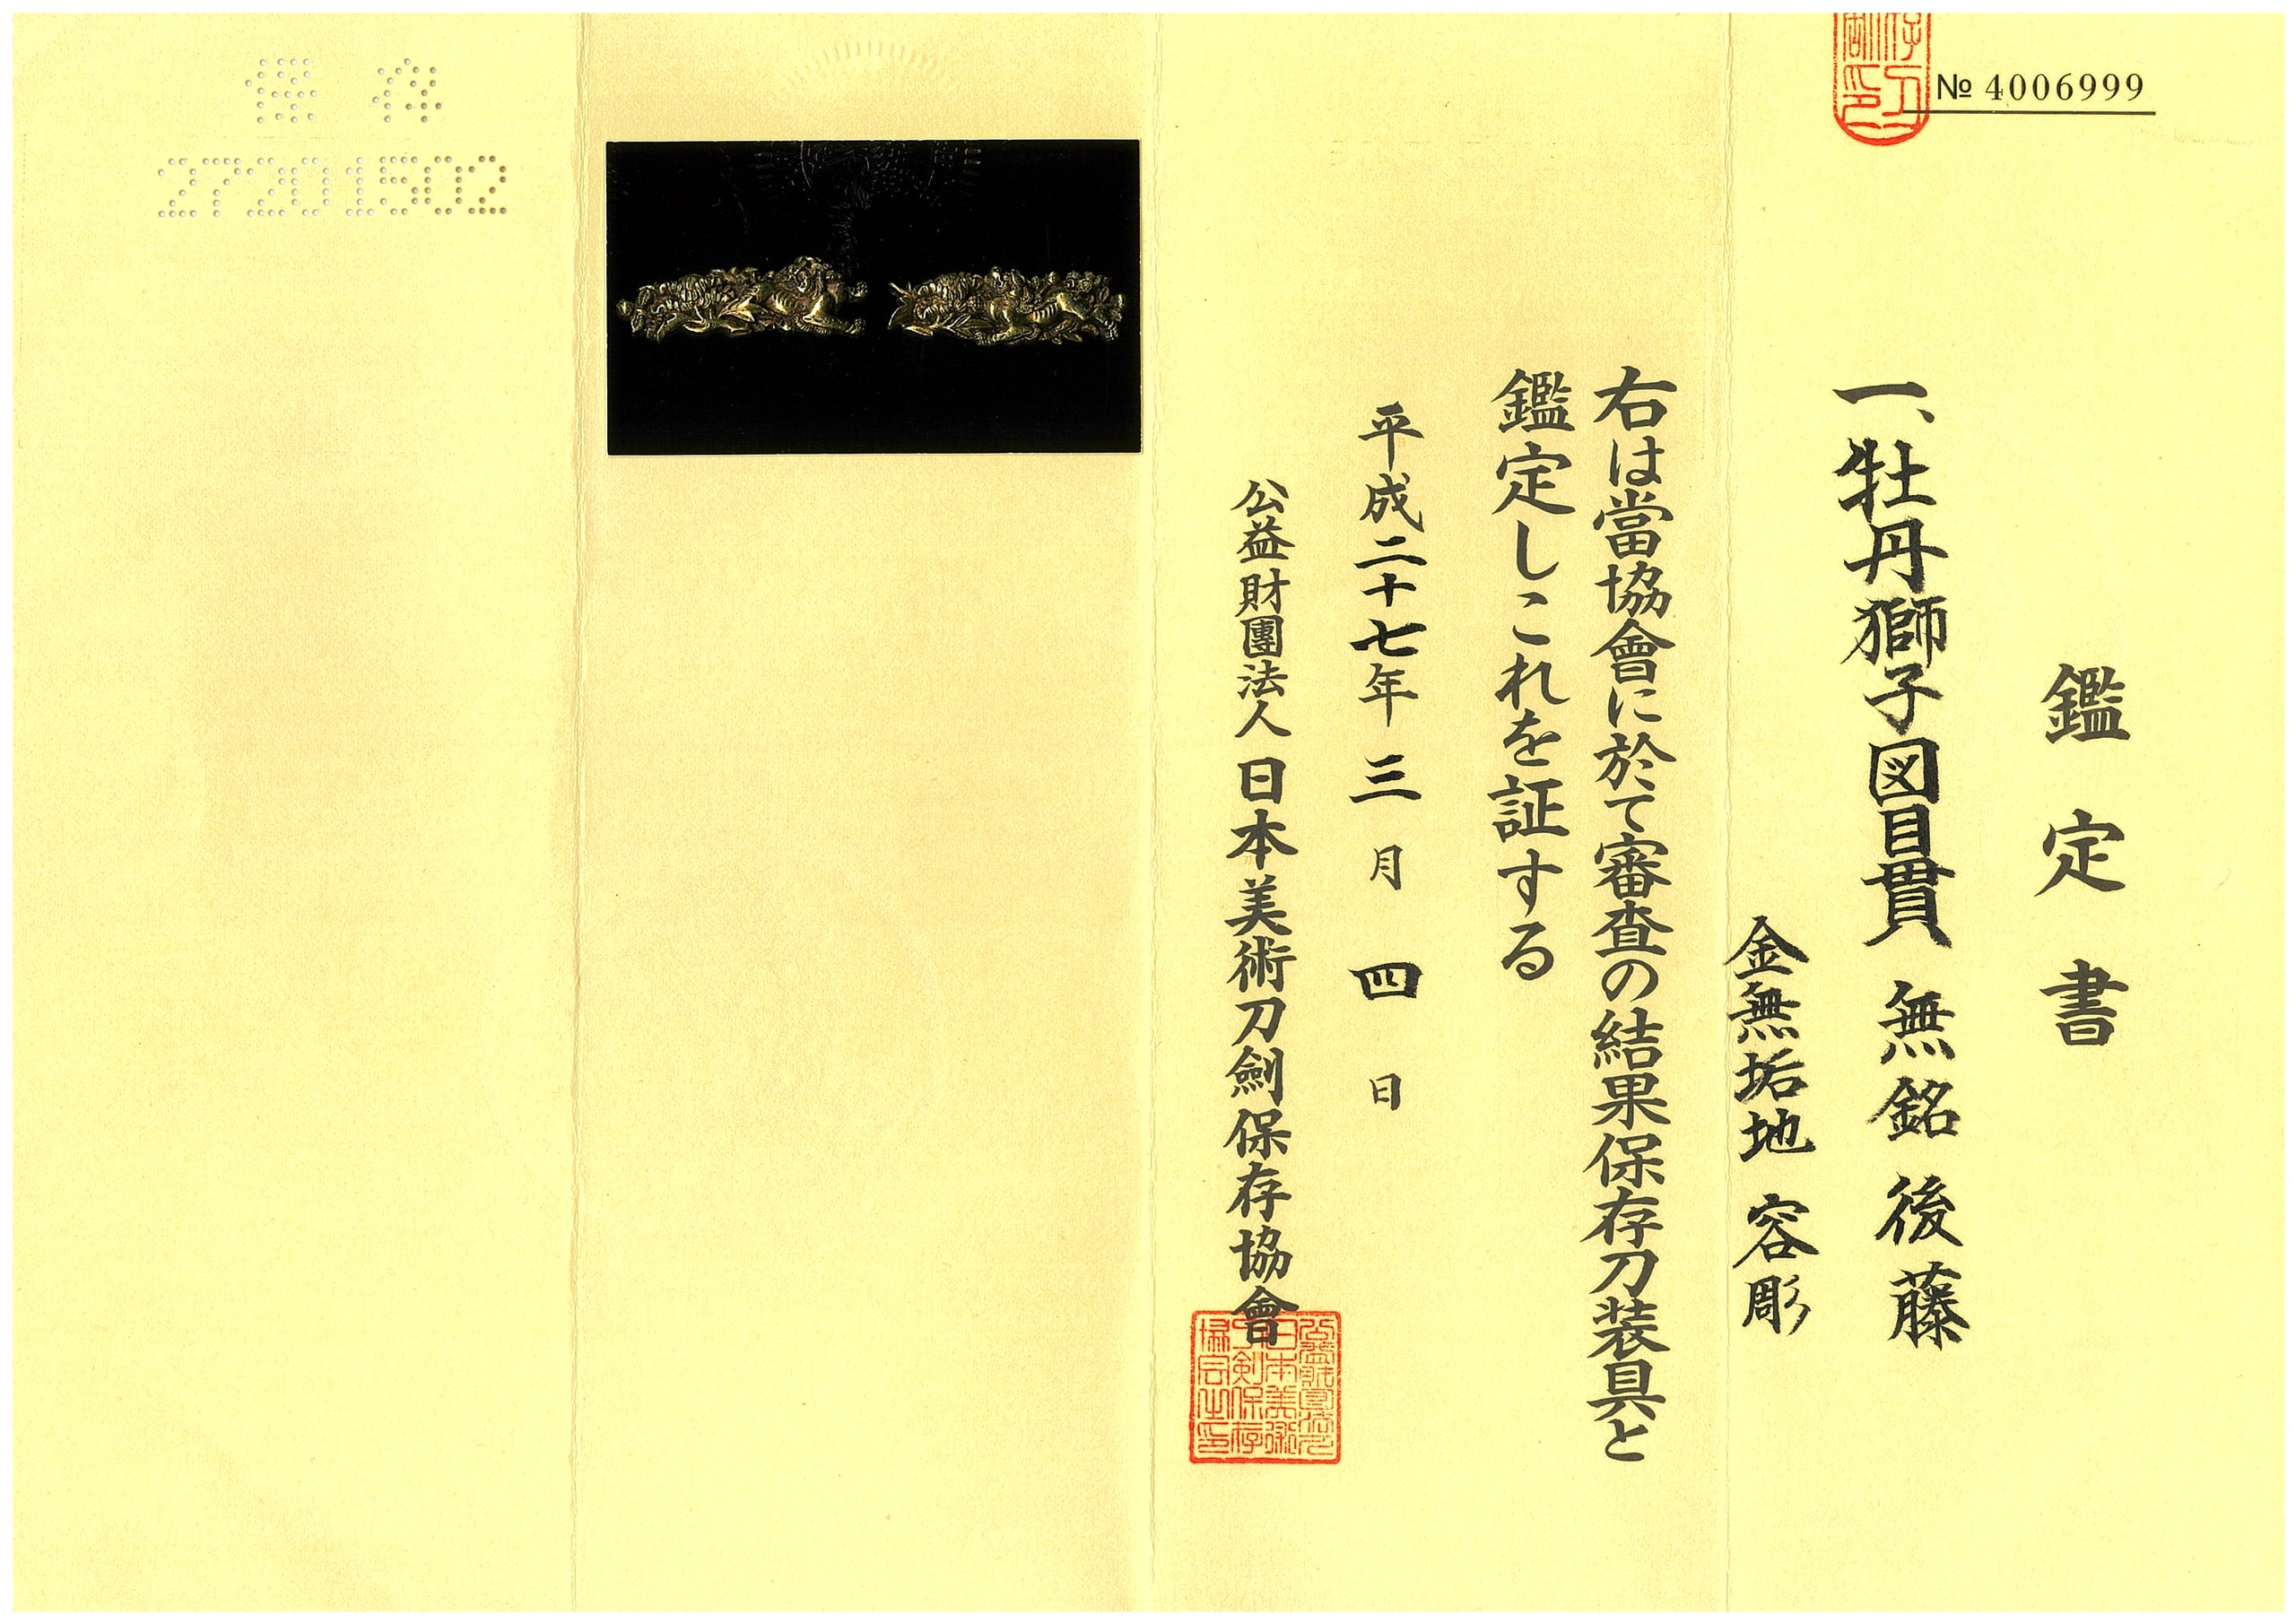 № 4006999
鑑定書
一、牡丹獅子図目貫 無銘 後藤
金無垢地 容彫
右は當協會に於て審査の結果保存刀装具と
鑑定しこれを証する
平成二十七年三月四日
公益財團法人日本美術刀劍保存協會
保存
27201502